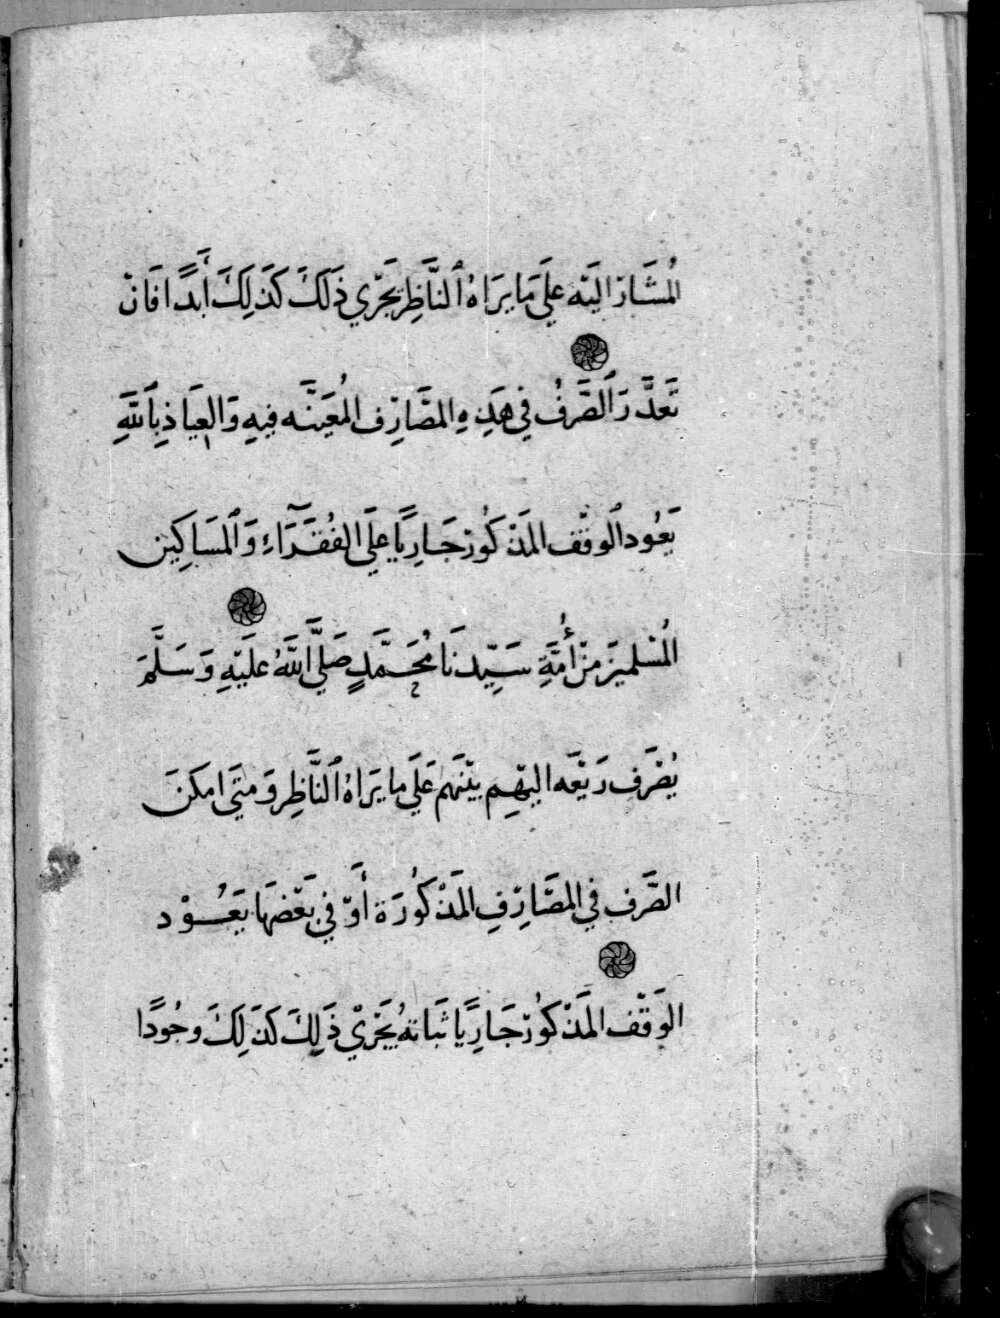 المُشَار اليَه عَلَى مَا يَرَاهُ النَّاظِر يَجْرِي ذَلَكَ كَذَلِكَ أَبَدًا فَانْ
تَعَذَّرَ الصَّرَفُ فِي هَذِهِ المصَّارِف المُعَيَنَّه فِيهِ وَالعِيَاذ بِاللَّهِ
يَعُود الوقْف المَذْكُورْ جَارِيًا عَلَى الفُقَرَآءِ وَالمسَاكِين
المُسْلمين مِنْ أُمَّةِ سَيِّدنَا مُحَمَّدٍ صَلَّى اللَّهُ عَلَيْهِ وَسَلَّمَ
يُصْرَف رَيْعَه اليْهِم بَيْنَهم عَلَى ما يَرَاهُ النَّاظِر وَمتَى امكَنَ
الصَّرَف فِي المصَّارِفِ المَذْكُورَة أَوْ فِي بَعْضهَا يَعُوْد
الوَقْف المَذْكُورْ جَارِيًا ثَبَاتهُ يَجْرِيْ ذَلِكَ كَذَلِكَ وجُودًا